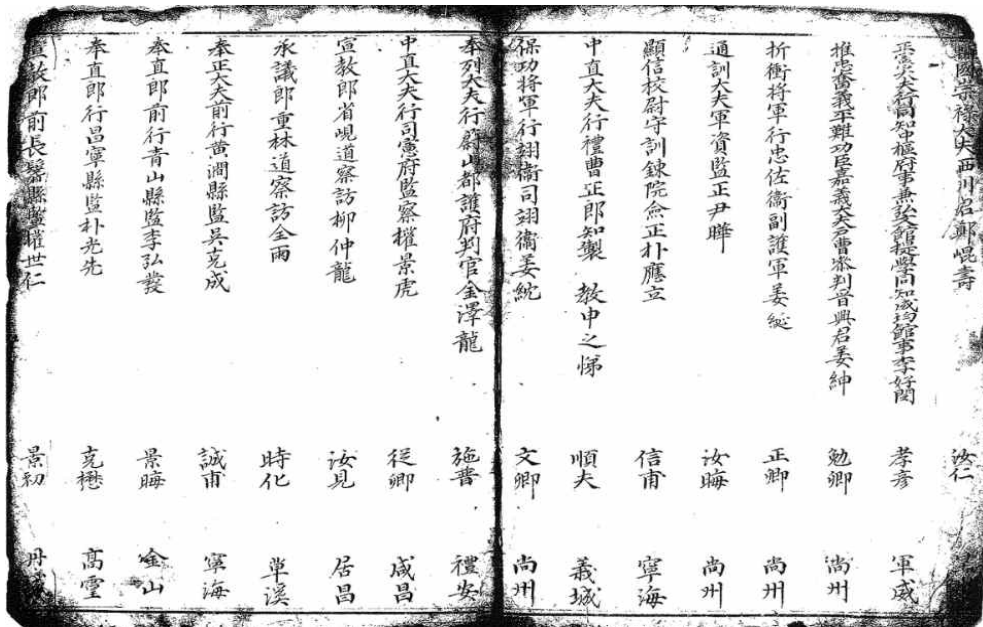 輔國崇祿大夫西川君鄭崐壽 汝仁
正憲大夫行同知中樞府事兼弘文館提學同知成均館事李好閔 孝彥 軍威
推忠奮義平難功臣嘉義大夫曹參判晉興君姜紳 勉卿 尚州
折衝將軍行忠佐衛副護軍姜綖 正卿 尚州
通訓大夫軍資監正尹曄 汝晦 尚州
顯信校尉守訓鍊院僉正朴應立 信甫 寧海
中直大夫行禮曹正郎知製 教申之悌 順夫 義城
保功將軍行翊衛司翊衛姜紞 文卿 尚州
奉列大夫行蔚山都護府判官金澤龍 施普 禮安
中直大夫行司憲府監察權景虎 從卿 咸昌
宣教郎省峴道察訪柳仲龍 汝見 居昌
承議郎重林道察訪全雨 時化 草溪
奉正大夫前行黃澗縣監吳克成 誠甫 寧海
奉直郎前行青山縣監李弘發 景晦 金山
奉直郎行昌寧縣監朴光先 克懋 高霊
宣教郎前長鬐縣監權世仁 景初 丹